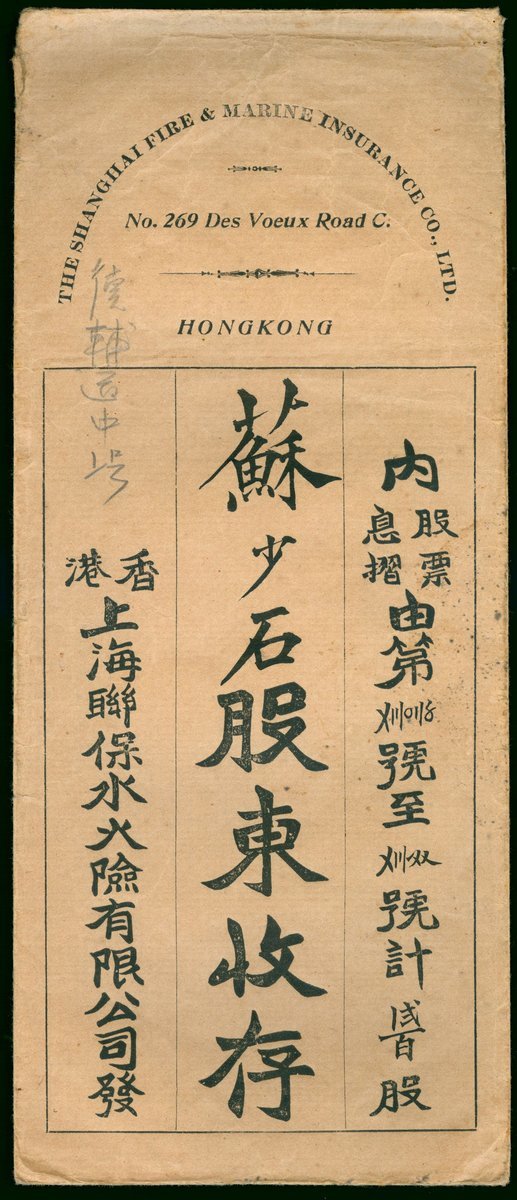 THE SHANGHAI FIRE & MARINE INSURANCE CO., LTD.
No. 269 Des Voeux Road C.
HONGKONG
內股票息摺由第號至號計弍百股
蘇少石股東收存
香港上海聯保水火險有限公司發
德輔道中号